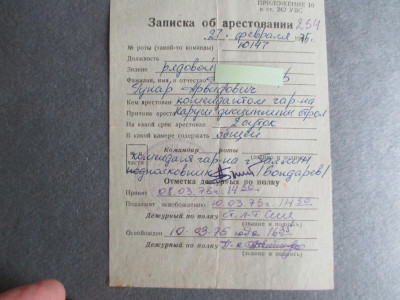 ПРИЛОЖЕНИЕ 10
к ст. 262 УВС
Записка об арестовании 254
27 февраля 1975г.
№ роты (такой-то команды)
Должность
Звание рядовой
Фамилия, имя, отчество
Гунар Арвидович
Кем арестован комендантом гар-на
Причина ареста наруш. дисциплины
На какой срок арестован 2 суток
В какой камере содержать общей
Командир роты
(звание и подпись)
части
подполковник (Бондарев)
Отметка дежурных по полку
Принят 08.03.75г 14
Подлежит освобождению 10.03.75г 14
Дежурный по полку ст. л-т
(звание и подпись)
Освобожден 10.03.75
Дежурный по полку
(звание и подпись)